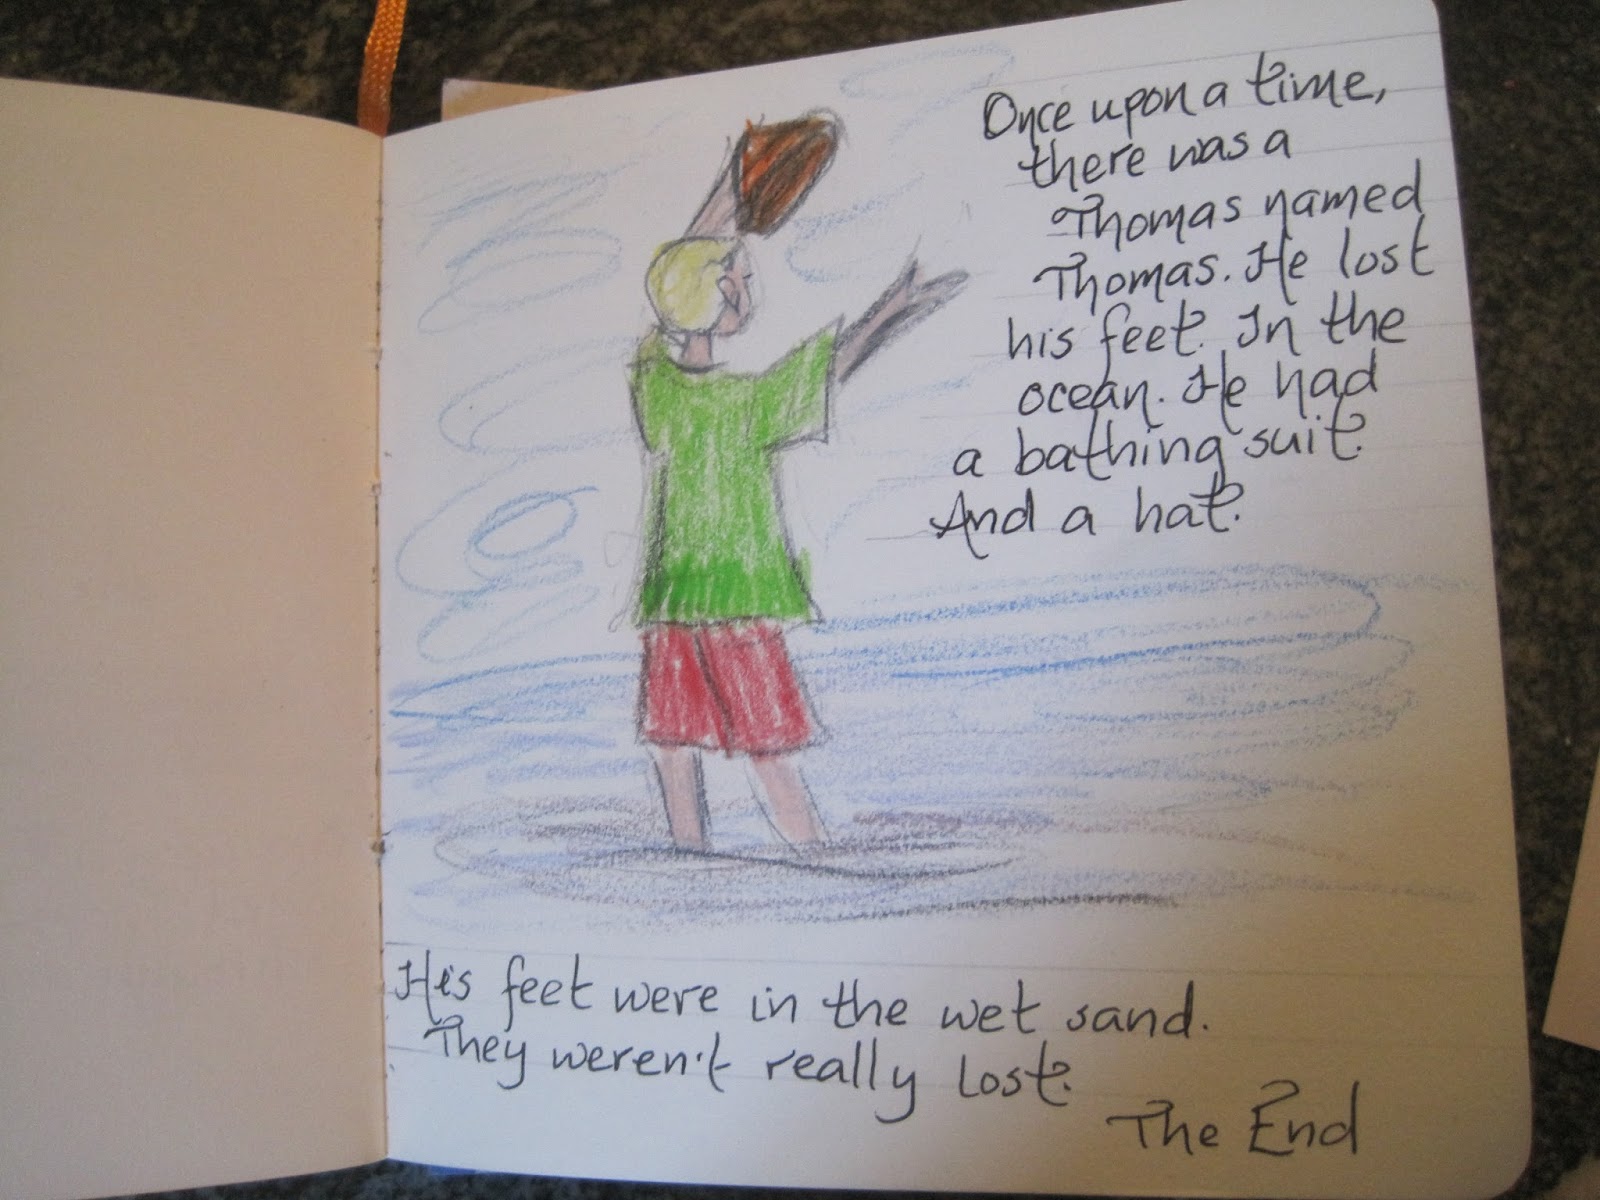 Once upon a time,
there was a
Thomas named
Thomas. He lost
his feet. In the
ocean. He had
a bathing suit.
And a hat.
His feet were in the wet sand.
They weren't really lost.
The End